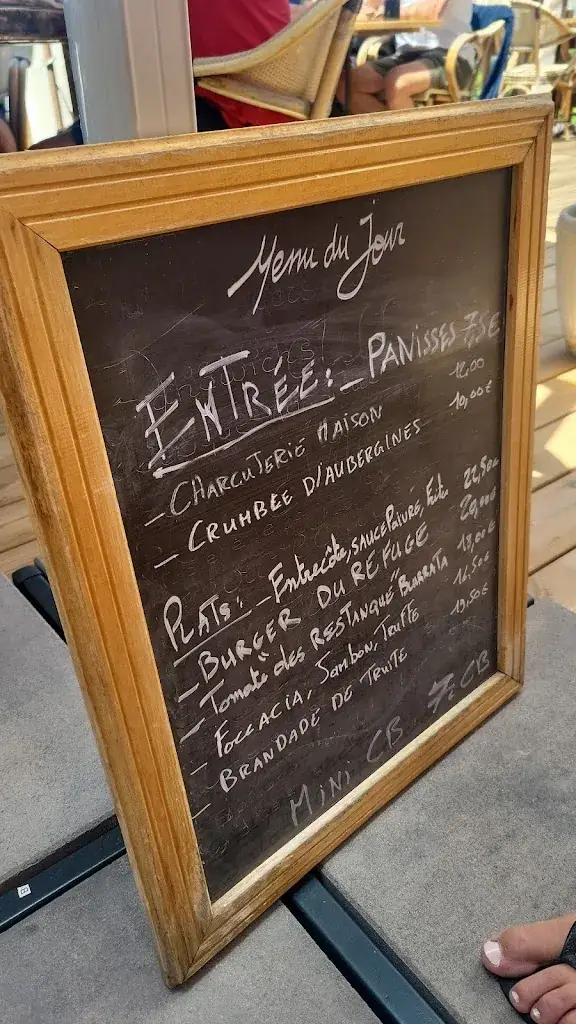 Menu du Jour
ENTRÉE: - PANISSES 7,5€
- CHARCUTERIE MAISON 12,00
- CRUMBLE D'AUBERGINES 10,00€
PLATS: - Entrecôte, SAUCE Poivre, Frite 22,50€
- BURGER DU REFUGE 20,00€
- Tomate "des RESTANQUE" BURRATA 18,00€
- FOCCACIA, Jambon, Truffe 16,50€
- BRANDADE DE TRUITE 19,50€
MINI CB 7€ CB